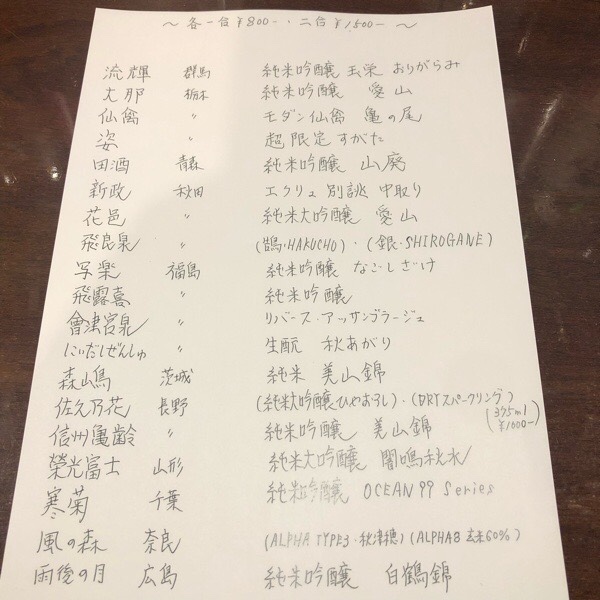 〜 各一合 ¥800-・二合 ¥1500- 〜
流輝 群馬 純米吟醸 玉栄 おりがらみ
大那 栃木 純米吟醸 愛山
仙禽 〃 モダン仙禽 亀の尾
姿 〃 超限定 すがた
田酒 青森 純米吟醸 山廃
新政 秋田 エクリュ 別誂 中取り
花邑 〃 純米大吟醸 愛山
飛良泉 〃 (鵠・HAKUCHO)・(銀・SHIROGANE)
写楽 福島 純米吟醸 なごしざけ
飛露喜 〃 純米吟醸
會津宮泉 〃 リバース・アッサンブラージュ
にいだしぜんしゅ 〃 生酛 秋あがり
森嶋 茨城 純米 美山錦
佐久乃花 長野 (純米大吟醸ひやおろし)・(DRYスパークリング)
(375ml ¥1000-)
信州亀齢 〃 純米吟醸 美山錦
榮光冨士 山形 純米大吟醸 闇鳴秋水
寒菊 千葉 純米吟醸 OCEAN 99 Series
風の森 奈良 (ALPHA TYPE3・秋津穂) (ALPHA8 玄米60%)
雨後の月 広島 純米吟醸 白鶴錦